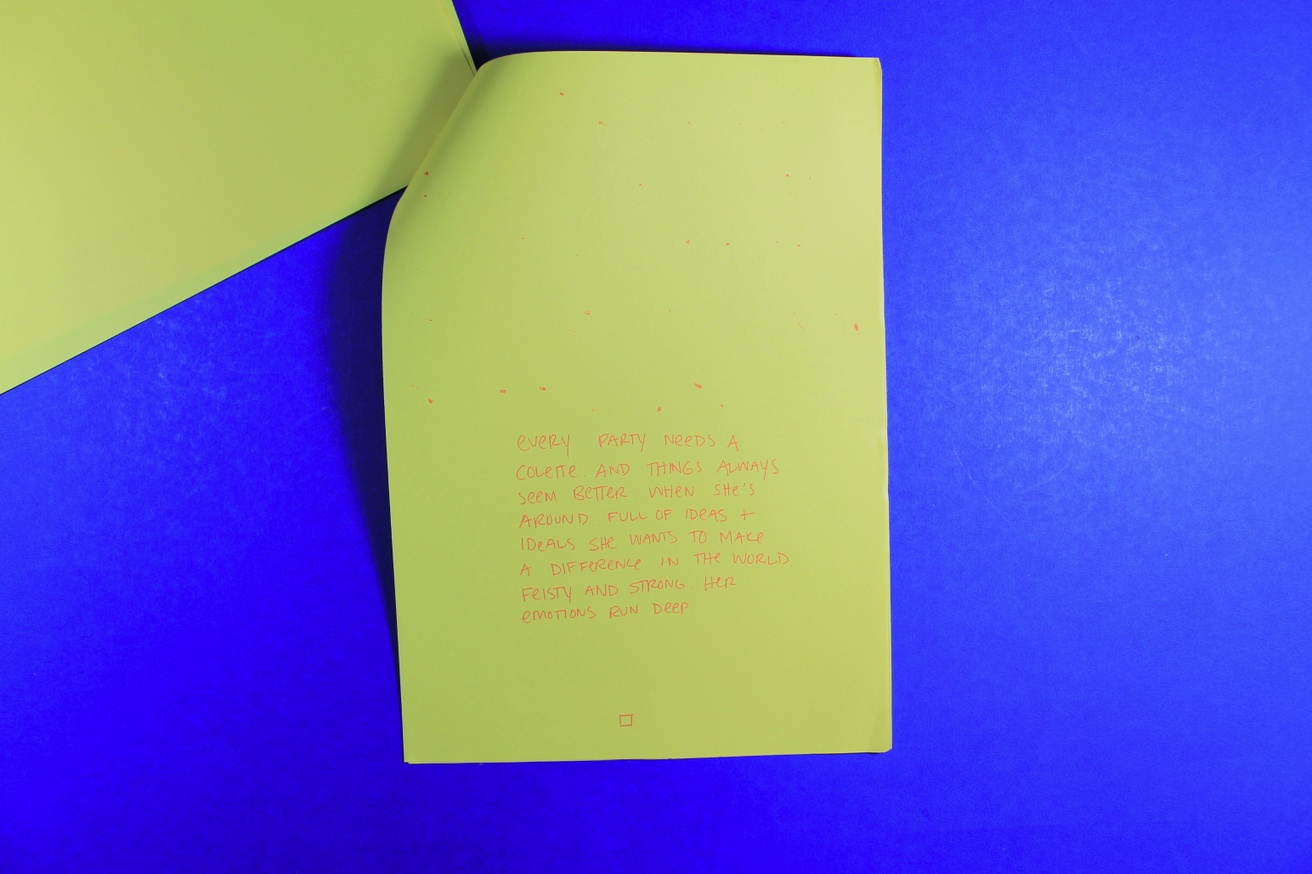 EVERY PARTY NEEDS A
COLETTE. AND THINGS ALWAYS
SEEM BETTER WHEN SHE'S
AROUND FULL OF IDEAS +
IDEALS SHE WANTS TO MAKE
A DIFFERENCE IN THE WORLD
FEISTY AND STRONG. HER
EMOTIONS RUN DEEP